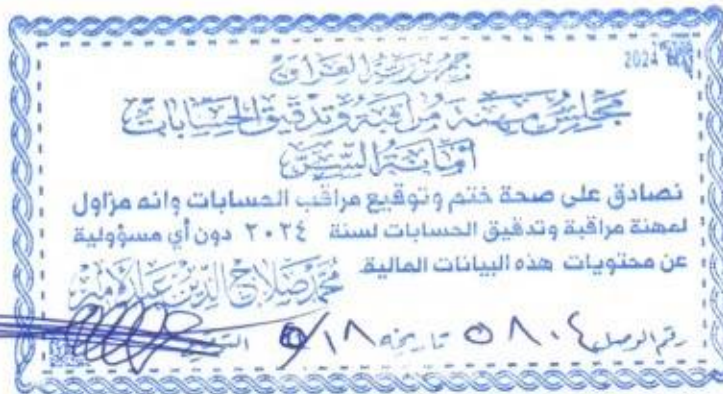 2024
جمهورية العراق
مجلس مهنة مراقبة وتدقيق الحسابات
أمانة السر
نصادق على صحة ختم وتوقيع مراقب الحسابات وانه مزاول
لمهنة مراقبة وتدقيق الحسابات لسنة ٢٠٢٤ دون أي مسؤولية
عن محتويات هذه البيانات المالية
محمد صلاح الدين عبد الأمير
رقم الوصل ٥٨٠٤ تاريخه ٥/١٨